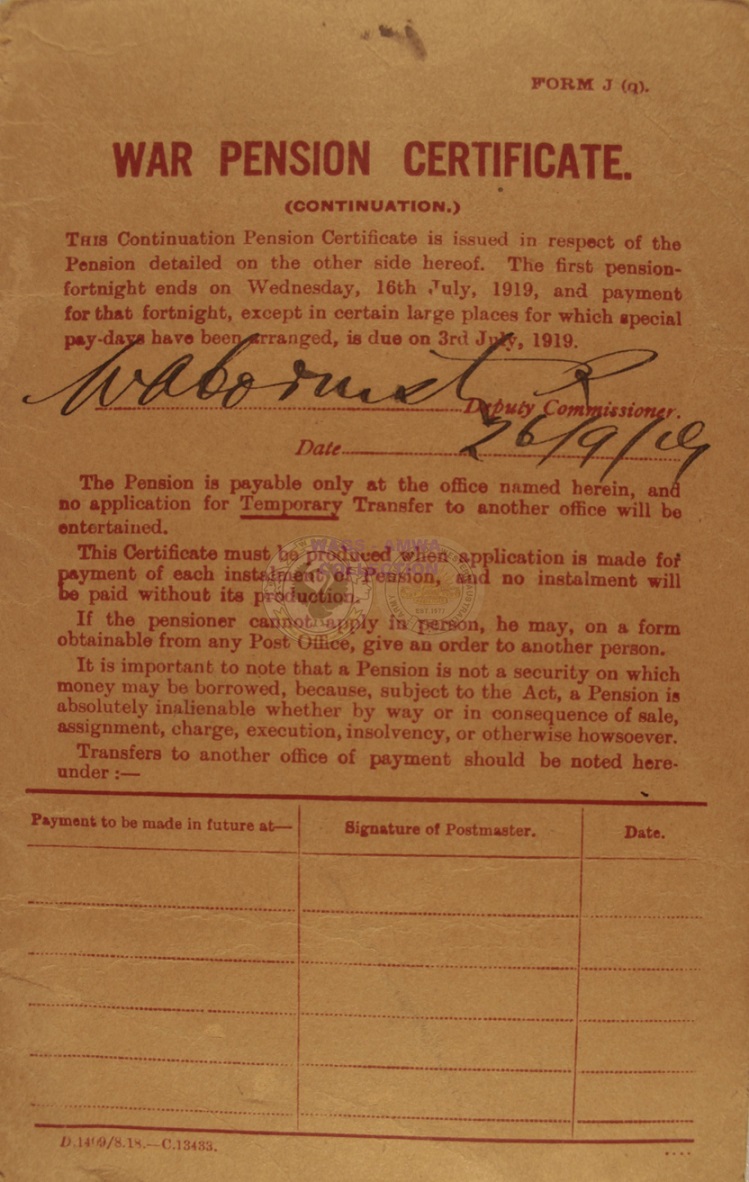 FORM J (q).
WAR PENSION CERTIFICATE.
(CONTINUATION.)
THIS Continuation Pension Certificate is issued in respect of the
Pension detailed on the other side hereof. The first pension-
fortnight ends on Wednesday, 16th July, 1919, and payment
for that fortnight, except in certain large places for which special
pay-days have been arranged, is due on 3rd July, 1919.
Deputy Commissioner.
Date 26/9/19
The Pension is payable only at the office named herein, and
no application for Temporary Transfer to another office will be
entertained.
This Certificate must be produced when application is made for
payment of each instalment of Pension, and no instalment will
be paid without its production.
If the pensioner cannot apply in person, he may, on a form
obtainable from any Post Office, give an order to another person.
It is important to note that a Pension is not a security on which
money may be borrowed, because, subject to the Act, a Pension is
absolutely inalienable whether by way or in consequence of sale,
assignment, charge, execution, insolvency, or otherwise howsoever.
Transfers to another office of payment should be noted here-
under :—
Payment to be made in future at— Signature of Postmaster. Date.
D.1499/8.18.—C.13433.
COLLECTION